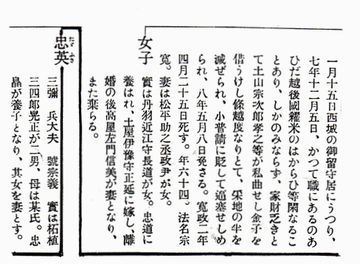 一月十五日西城の御留守居にうつり、
七年十二月五日、かつて職にあるのあ
ひだ越後國糴米のはからひ等閑なるこ
とあり、しかのみならず、家財乏きと
て土山宗次郎孝之等が私曲せし金子を
借うけし條越度なりとて、采地の半を
減ぜられ、小普請に貶して逼塞せしめ
られ、八年五月八日發さる。寛政二年
四月二十五日死す。年六十四。法名宗
寛。妻は松平助之丞政尹が女。
女子
實は丹羽近江守長道が女。忠道に
養はれ、土屋伊豫守正延に嫁し、離
婚の後高屋左門信美が妻となり、
また棄らる。
忠英
たゞふさ
三彌 兵大夫 號宗義 實は柘植
三四郎晃正が二男、母は某氏。忠
晶が養子となり、其女を妻とす。